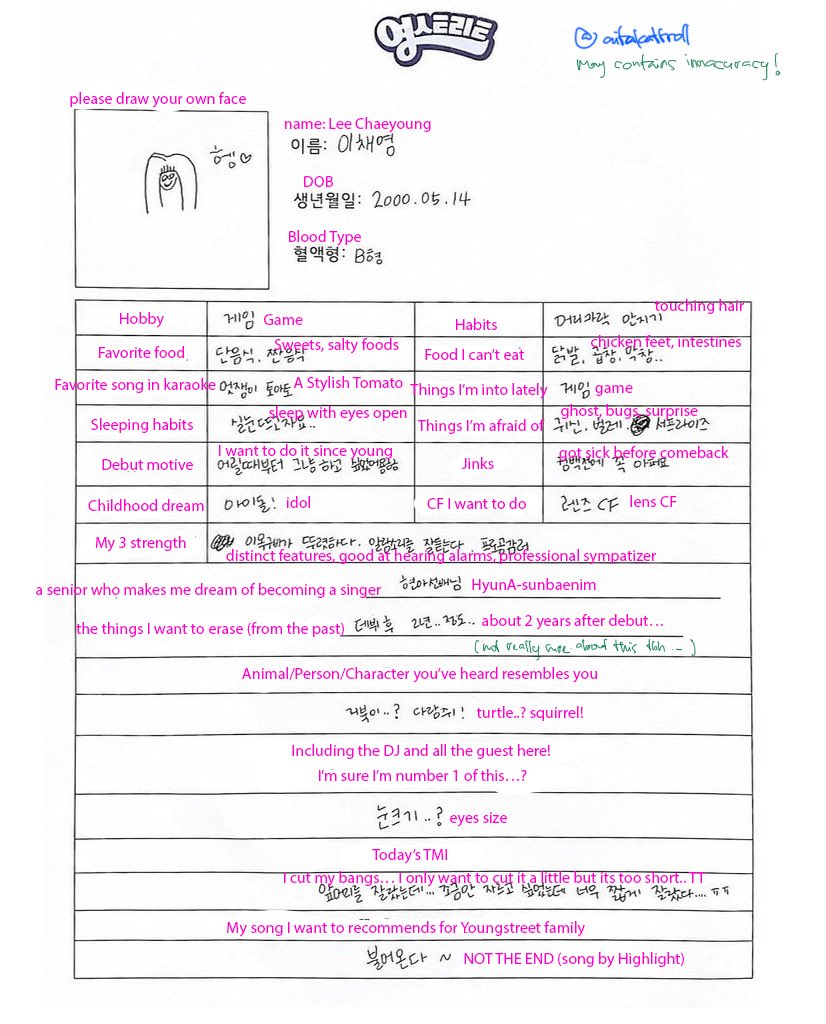 영스트리트
May contains innacuracy!
please draw your own face
헹♡
name: Lee Chaeyoung
이름: 이채영
DOB
생년월일: 2000.05.14
Blood Type
혈액형: B형
Hobby 게임 Game Habits 머리카락 만지기 touching hair
Favorite food 단음식, 짠음식 Sweets, salty foods Food I can't eat 닭발, 곱창, 막창.. chicken feet, intestines
Favorite song in karaoke 멋쟁이 토마토 A Stylish Tomato Things I'm into lately 게임 game
Sleeping habits 실눈뜨고자요.. sleep with eyes open Things I'm afraid of 귀신, 벌레, 서프라이즈 ghost, bugs, surprise
Debut motive 어릴때부터 그냥 하고 싶었어용 I want to do it since young Jinks 컴백전에 꼭 아파요 got sick before comeback
Childhood dream 아이돌! idol CF I want to do 렌즈 CF lens CF
My 3 strength 이목구비가 뚜렷하다. 알람소리를 잘듣는다 프로공감러
distinct features, good at hearing alarms, professional sympatizer
a senior who makes me dream of becoming a singer 현아선배님 HyunA-sunbaenim
the things I want to erase (from the past) 데뷔 후 2년..정도.. about 2 years after debut...
(not really sure about this tbh --)
Animal/Person/Character you've heard resembles you
거북이..? 다람쥐! turtle..? squirrel!
Including the DJ and all the guest here!
I'm sure I'm number 1 of this...?
눈크기..? eyes size
Today's TMI
I cut my bangs... I only want to cut it a little but its too short.. TT
앞머리를 잘랐는데... 조금만 자르고 싶었는데 너무 짧게 잘랐다.... ㅠㅠ
My song I want to recommends for Youngstreet family
불어온다 ~ NOT THE END (song by Highlight)